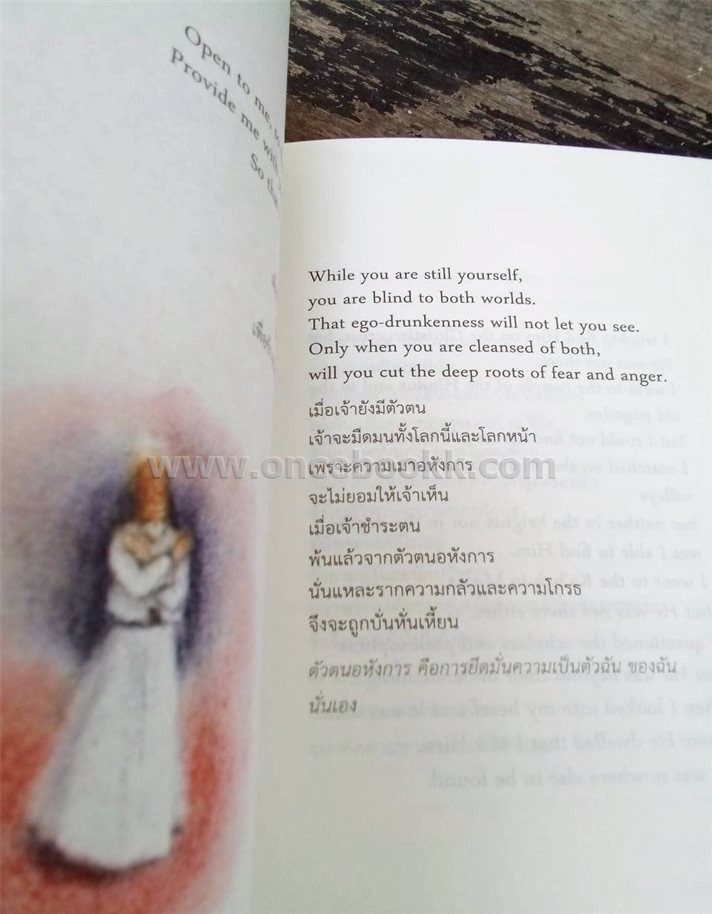 Open to me, s
Provide me with
So tha
While you are still yourself,
you are blind to both worlds.
That ego-drunkenness will not let you see.
Only when you are cleansed of both,
will you cut the deep roots of fear and anger.
เมื่อเจ้ายังมีตัวตน
เจ้าจะมืดมนทั้งโลกนี้และโลกหน้า
เพราะความเมาอหังการ
จะไม่ยอมให้เจ้าเห็น
เมื่อเจ้าชำระตน
พ้นแล้วจากตัวตนอหังการ
นั่นแหละรากความกลัวและความโกรธ
จึงจะถูกบั่นหั่นเหี้ยน
ตัวตนอหังการ คือการยึดมั่นความเป็นตัวฉัน ของฉัน
นั่นเอง
www.oncebookk.com